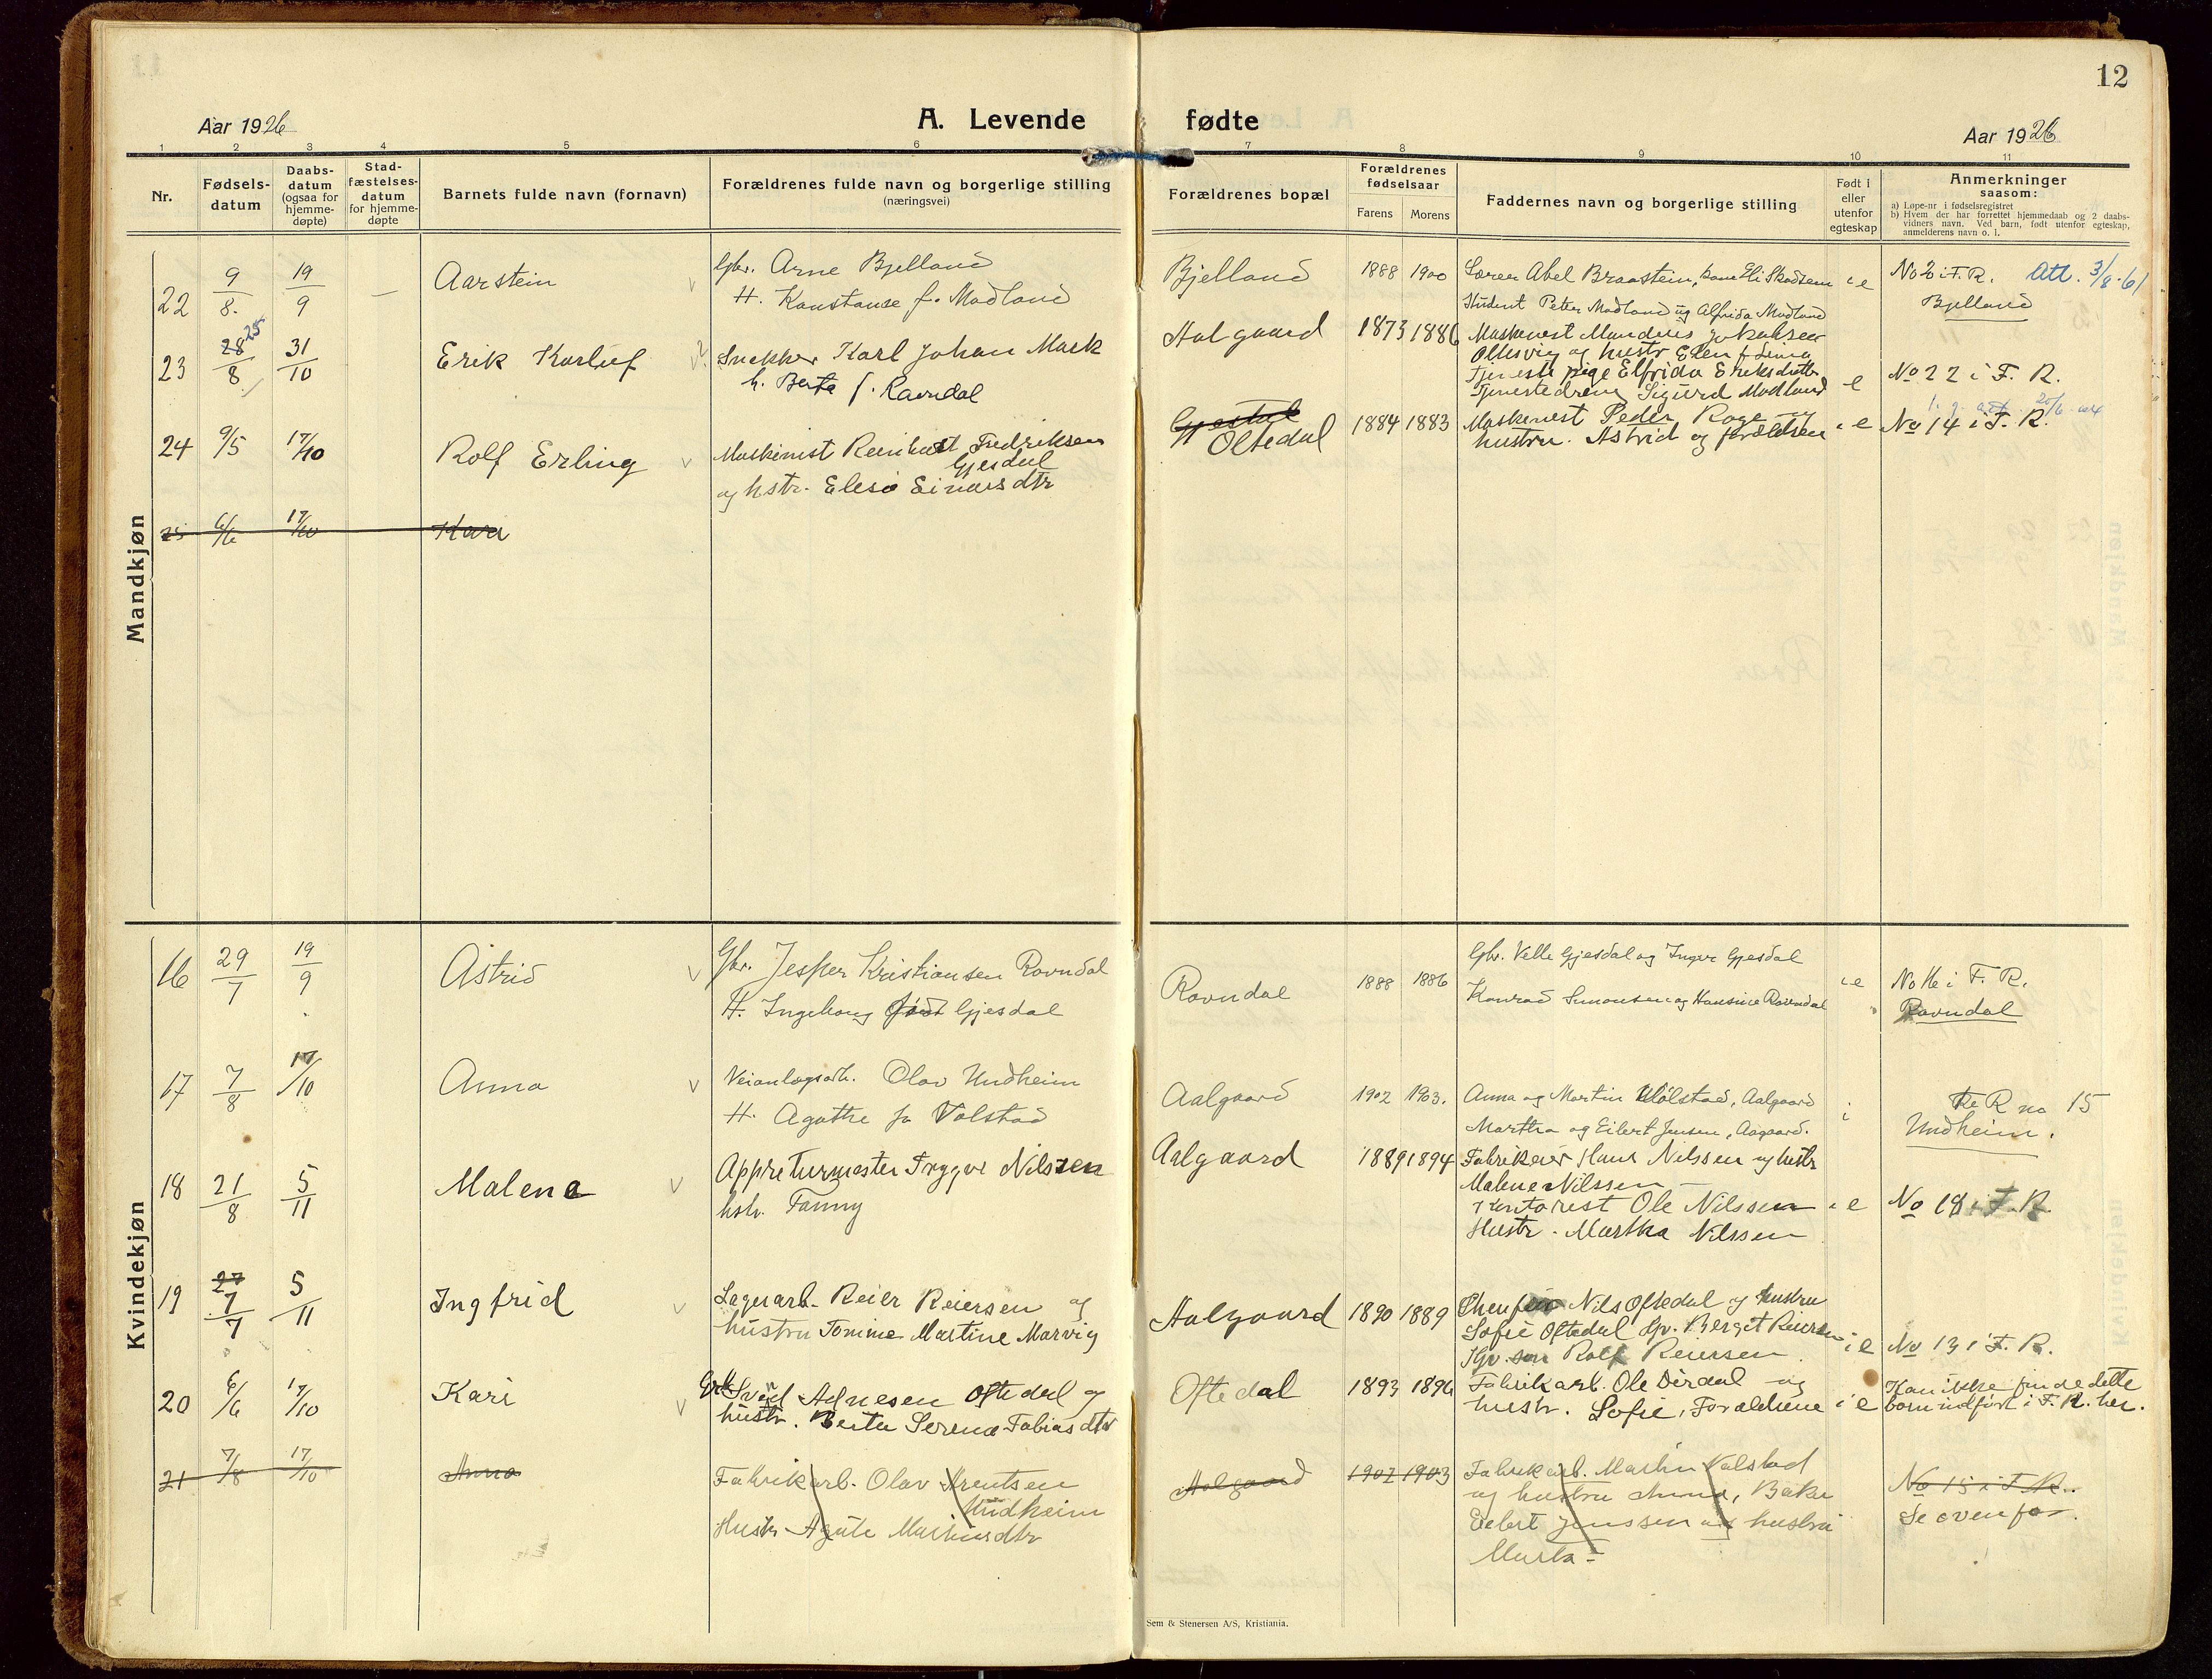 12
Aar 1926
A. Levende fødte
Aar 1926
1 2 3 4 5 6 7 8 9 10 11
Nr.
Fødsels-
datum
Daabs-
datum
(ogsaa for
hjemme-
døpte)
Stad-
fæstelses-
datum
for hjemme-
døpte
Barnets fulde navn (fornavn)
Forældrenes fulde navn og borgerlige stilling
(næringsvei)
Forældrenes bopæl
Forældrenes
fødselsaar
Farens Morens
Faddernes navn og borgerlige stilling
Født i
eller
utenfor
egteskap
Anmerkninger
saasom:
a) Løpe-nr i fødselsregistret
b) Hvem der har forrettet hjemmedaab og 2 daabs-
vidners navn. Ved barn, født utenfor egteskap,
anmelderens navn o. l.
Mandkjøn
22 9/8. 19/9 — Aarstein
Gbr. Arne Bjelland
H. Konstanse f. Madland
Bjelland 1888 1900
Lærer Abel Braastein, kone Eli Skadsem
Student Peter Madland og Alfrida Madland
i e
No 2 i F. R. Att. 3/8-61
Bjelland
23 28/8 25 31/10 Erik Karluf
Snekker Karl Johan Mark
h. Berta f. Ravndal
Aalgaard 1873 1886
Oltesvig og hustr Elen f Lima
Tjenestepige Elfrida Eriksdatter
Tjenestedreng Sigurd Madland
e
No 22 i F. R.
24 9/5 17/10 Rolf Erling
Maskinist Reinhart Fredriksen
Gjesdal
og hstr. Elesø Einarsdtr
Gjesdal
Oltedal 1884 1883
Maskinist Peder Roge og
hustru. Astrid og forældrene
i e
No 14 i F. R.
25 6/6 17/10 Kari
Kvindekjøn
16 29/7 19/9 Astrid
Gbr. Jesper Kristiansen Ravndal
H. Ingeborg født Gjesdal
Ravndal 1888 1886
Gbr. Velle Gjesdal og Inger Gjesdal
Konrad Simonsen og Hansine Ravndal
i e
No 16 i F. R.
Ravndal
17 7/8 17/10 Anna
Veianlægsarb. Olav Undheim
H. Agathe fø Valstad
Aalgaard 1902 1903.
Anna og Martin Wølstad, Aalgaard
Martha og Eilert Jensen, Aagaard.
i
F R no 15
Undheim.
18 21/8 5/11 Malena
Appreturmester Trygve Nilssen
hstr. Fanny
Aalgaard 1889 1894
Fabrikeier Hans Nilssen og hustr
Malene Nilssen
Kontorist Ole Nilssen
Hustr. Martha Nilssen
i e
No 18 i F. R.
19 27 7/7 5/11 Ingfrid
Lagerarb. Reier Reiersen og
hustru Tomine Martine Marvig
Aalgaard 1890 1889
Nils Oftedal og hustru
Sofie Oftedal Gp. Berget Reiersen
Rolf Reiersen
i e
No 13 i F. R.
20 6/6 17/10 Kari
Svend Adnesen Oftedal og
hustr. Berta Serena Tobiasdtr
Oftedal 1893 1896
Fabrikarb. Ole Dirdal og
hustr. Sofie, Forældrene
i e
Kan ikke finde dette
barn indført i F. R. her.
21 7/8 17/10 Anna
Fabrikarb. Olav Arentsen
Undheim
Hustr Agate Markusdtr
Aalgaard 1902 1903
Fabrikarb. Martin Valstad
og hustru Anna, Baker
Eilert Jenssen og hustru
Marta
No 15 i F. R.
Se ovenfor.
Sem & Stenersen A/S, Kristiania.